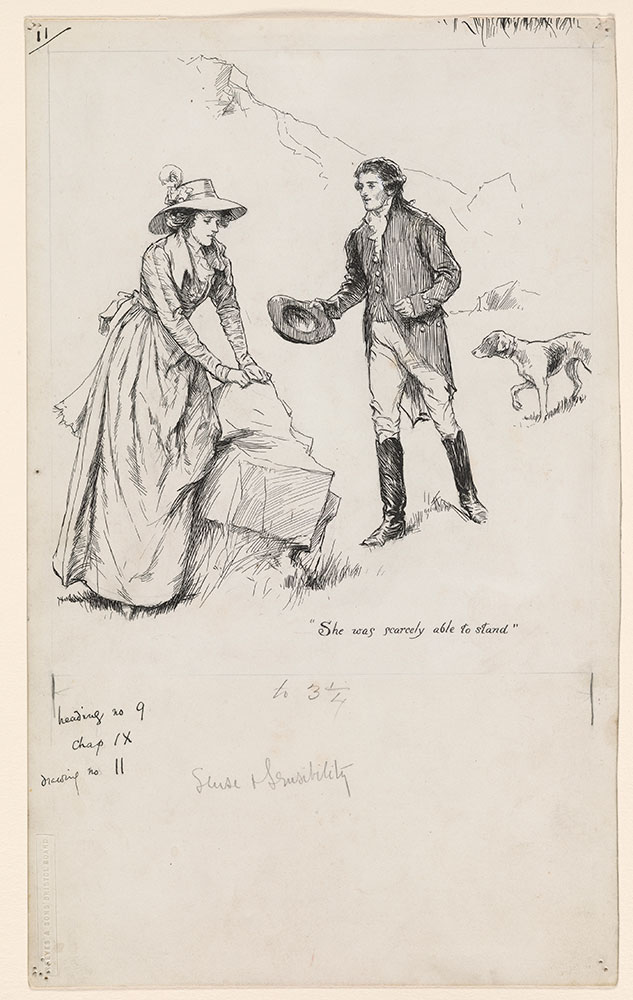 11
"She was scarcely able to stand"
to 3 1/4
heading no 9
Chap IX
drawing no 11
Sense & Sensibility
& SONS BRISTOL BOARD